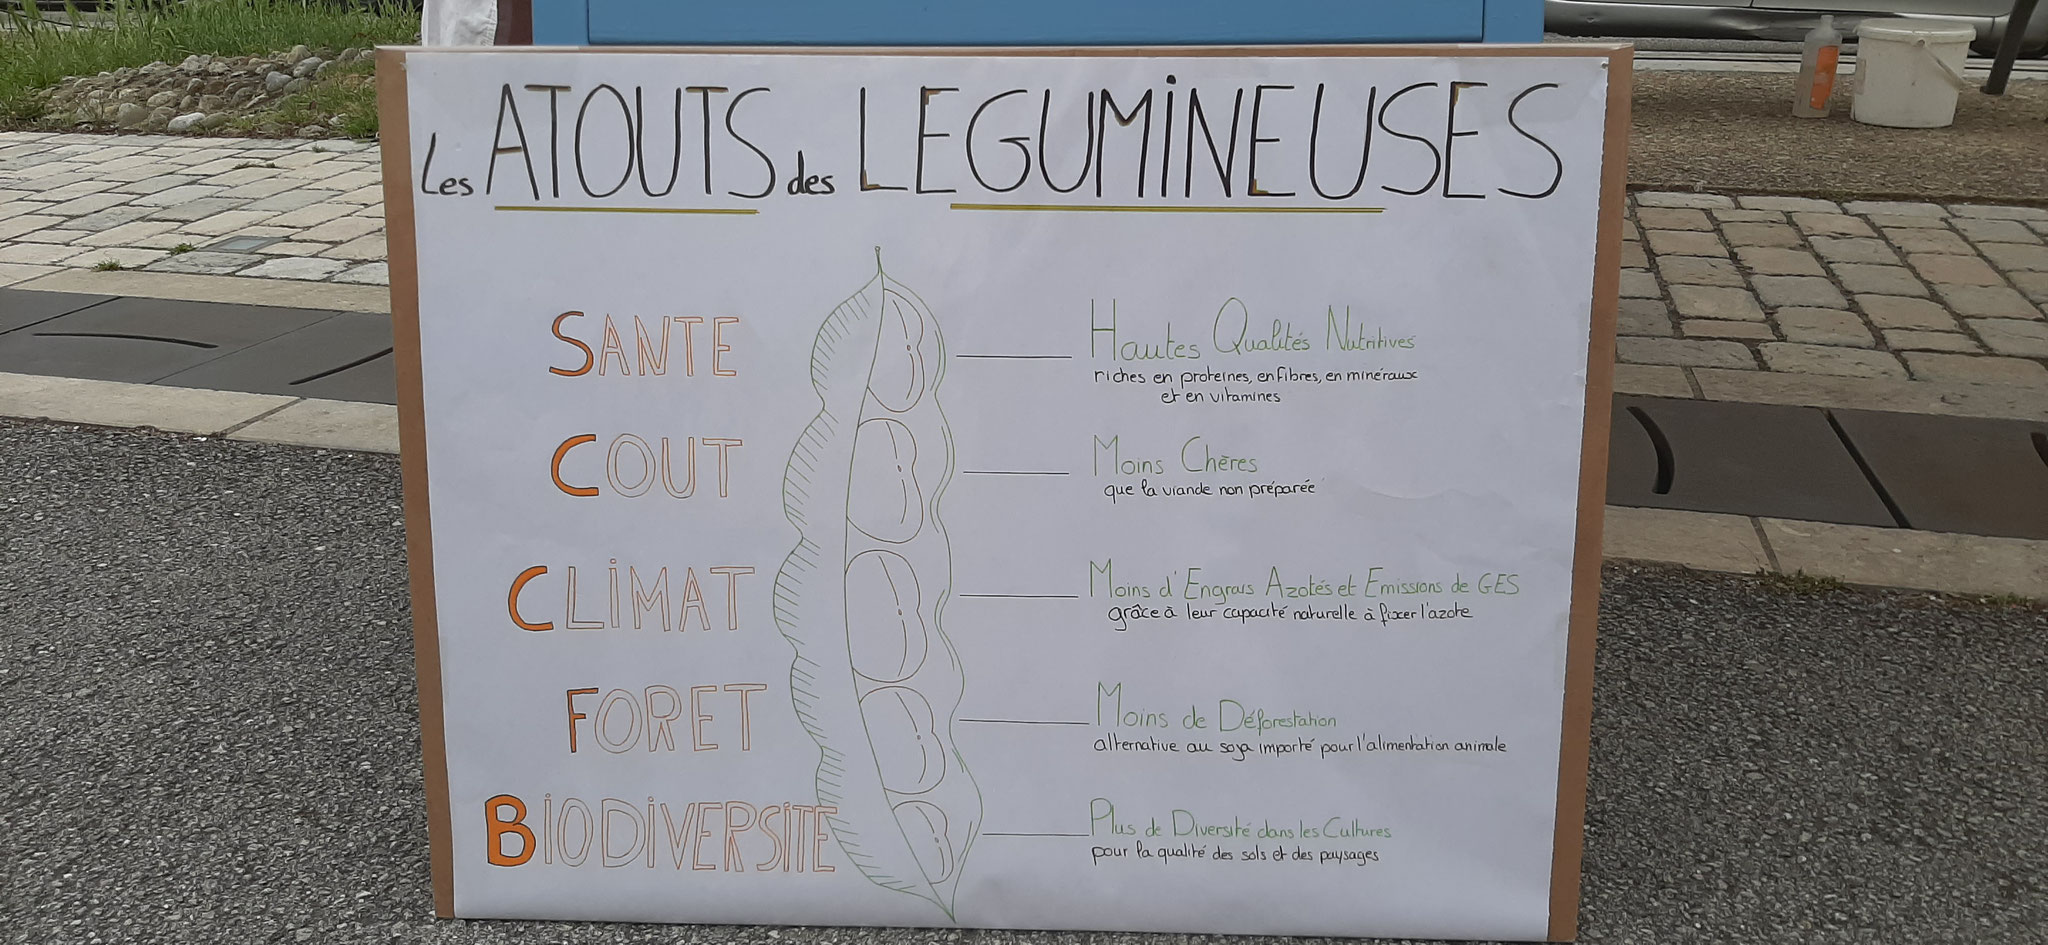 Les ATOUTS des LEGUMINEUSES
SANTE
Hautes Qualités Nutritives
riches en proteines, en fibres, en minéraux
et en vitamines
COUT
Moins Chères
que la viande non préparée
CLIMAT
Moins d'Engrais Azotés et Emissions de GES
grâce à leur capacité naturelle à fixer l'azote
FORET
Moins de Déforestation
alternative au soja importé pour l'alimentation animale
BIODIVERSITE
Plus de Diversité dans les Cultures
pour la qualité des sols et des paysages